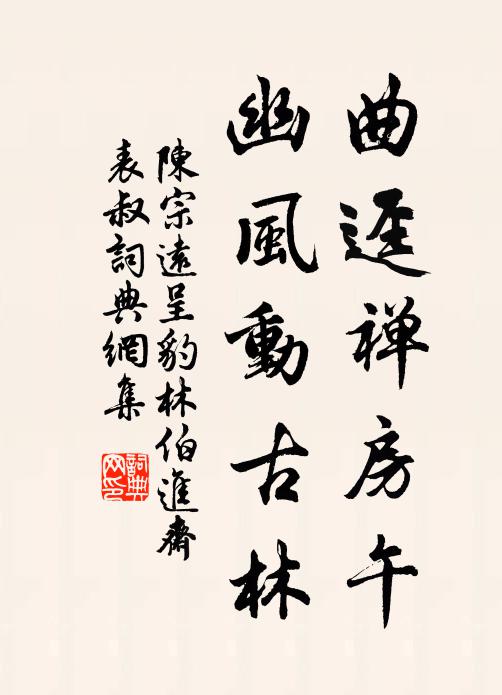 曲逕禅房午
幽風動古林
陳宗遠呈豹林伯進齋
表叔詞典網集
詞典網印